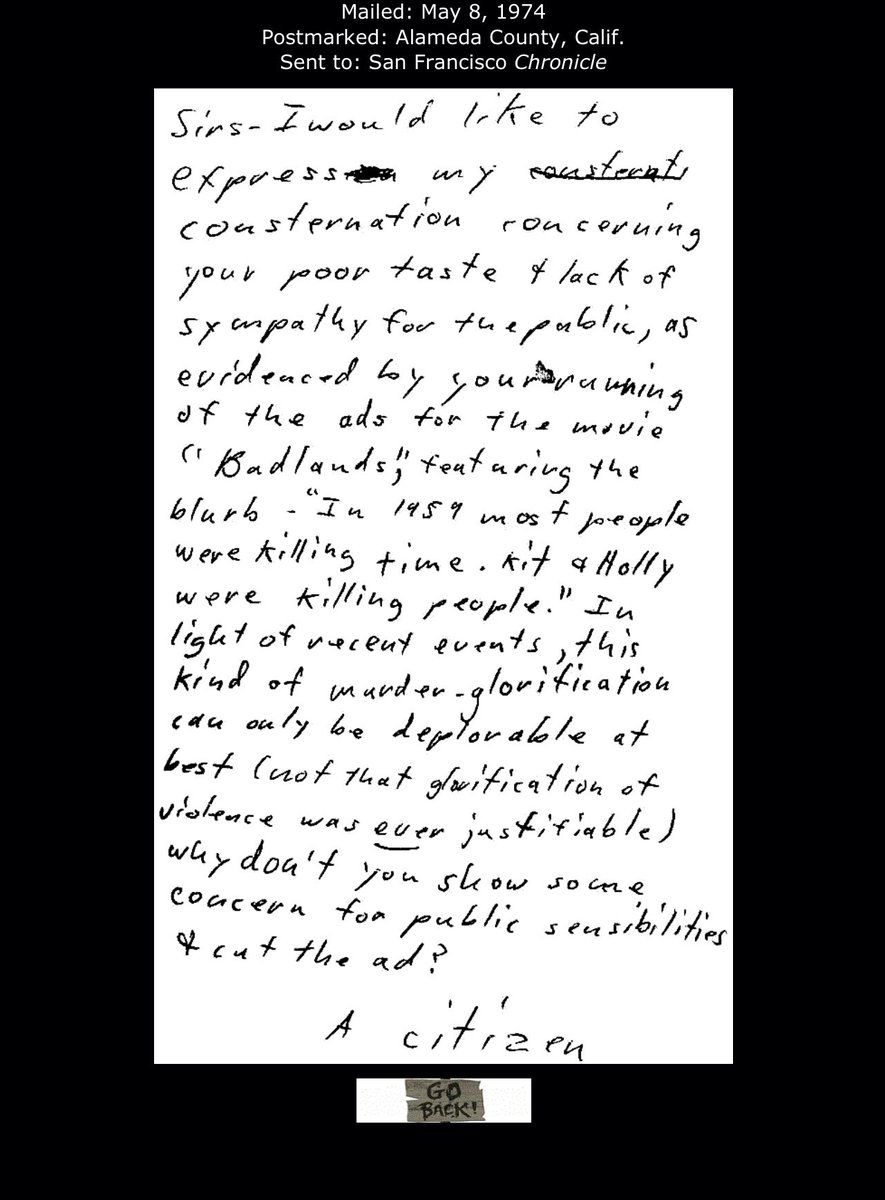 Mailed: May 8, 1974
Postmarked: Alameda County, Calif.
Sent to: San Francisco Chronicle
Sirs- I would like to
express my consternati
consternation concerning
your poor taste & lack of
sympathy for the public, as
evidenced by your running
of the ads for the movie
"Badlands," featuring the
blurb - "In 1959 most people
were killing time. Kit & Holly
were killing people." In
light of recent events, this
kind of murder-glorification
can only be deplorable at
best (not that glorification of
violence was ever justifiable)
why don't you show some
concern for public sensibilities
& cut the ad?
A citizen
GO
BACK!